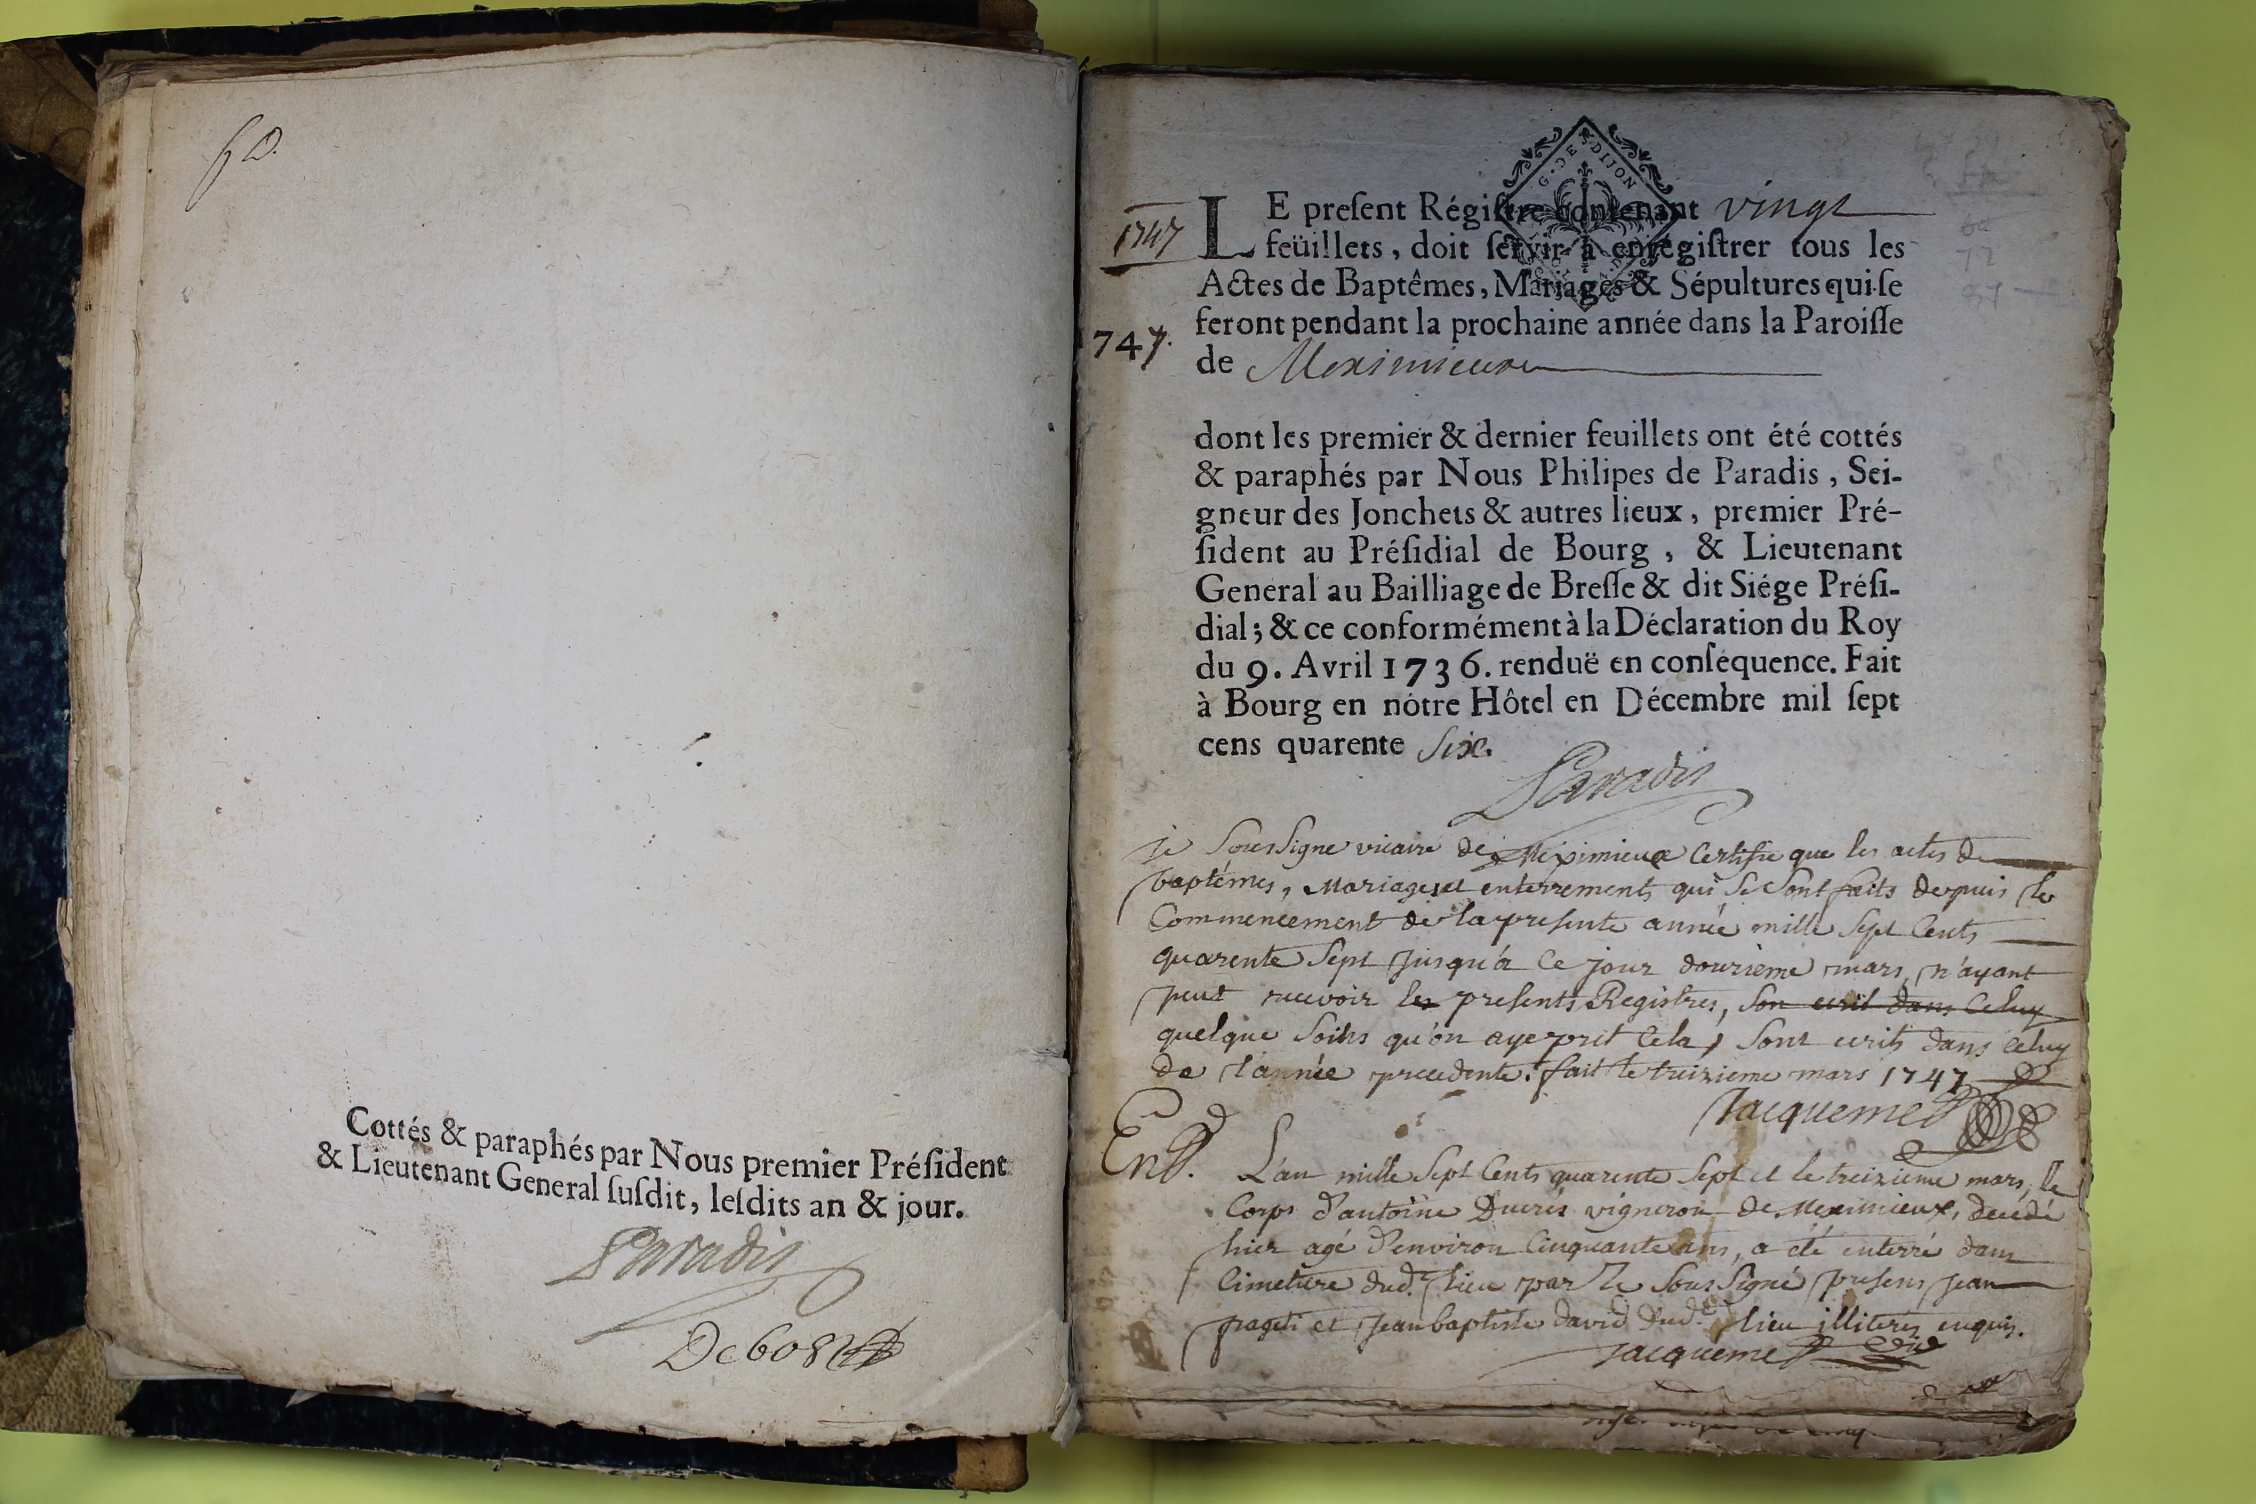 Cottés & paraphés par Nous premier Préſident
& Lieutenant General ſuſdit, leſdits an & jour.
Paradis
G. DES DIJON
1747
LE preſent Régiſtre contenant vingt
feüillets, doit ſervir à enrégiſtrer tous les
Actes de Baptêmes, Mariages & Sépultures qui ſe
feront pendant la prochaine année dans la Paroiſſe
747.
de Meximieux
dont les premier & dernier feuillets ont été cottés
& paraphés par Nous Philipes de Paradis, Sei-
gneur des Jonchets & autres lieux, premier Pré-
ſident au Préſidial de Bourg, & Lieutenant
General au Bailliage de Breſſe & dit Siége Préſi-
dial; & ce conformément à la Déclaration du Roy
du 9. Avril 1736. renduë en conſéquence. Fait
à Bourg en nôtre Hôtel en Décembre mil ſept
cens quarente Six.
Paradis
je Soussigne vicaire de Meximieux Certifie que les actes de
baptémes, Mariages et enterrements qui Se Sont faits depuis le
Commencement de la presente année mille Sept Cents
quarente Sept jusqu'a Ce jour douzieme mars, n'ayant
peut recevoir les presents Registres, Son ecrit dans Celuy
quelque Soins qu'on aye prit Cela, Sont ecrits dans Celuy
de l'année precedente. fait le treizieme mars 1747
Jacquemet
L'an mille Sept Cents quarente Sept et le treizieme mars, le
Corps d'antoine Ducrés vigneron de Meximieux, decedé
hier agé d'environ Cinquante ans, a été enterré dans
Cimetiere dud. lieu par le Sous Signé presens jean
pageti et jean baptiste david dud. lieu illiterés enquis.
jacquemet